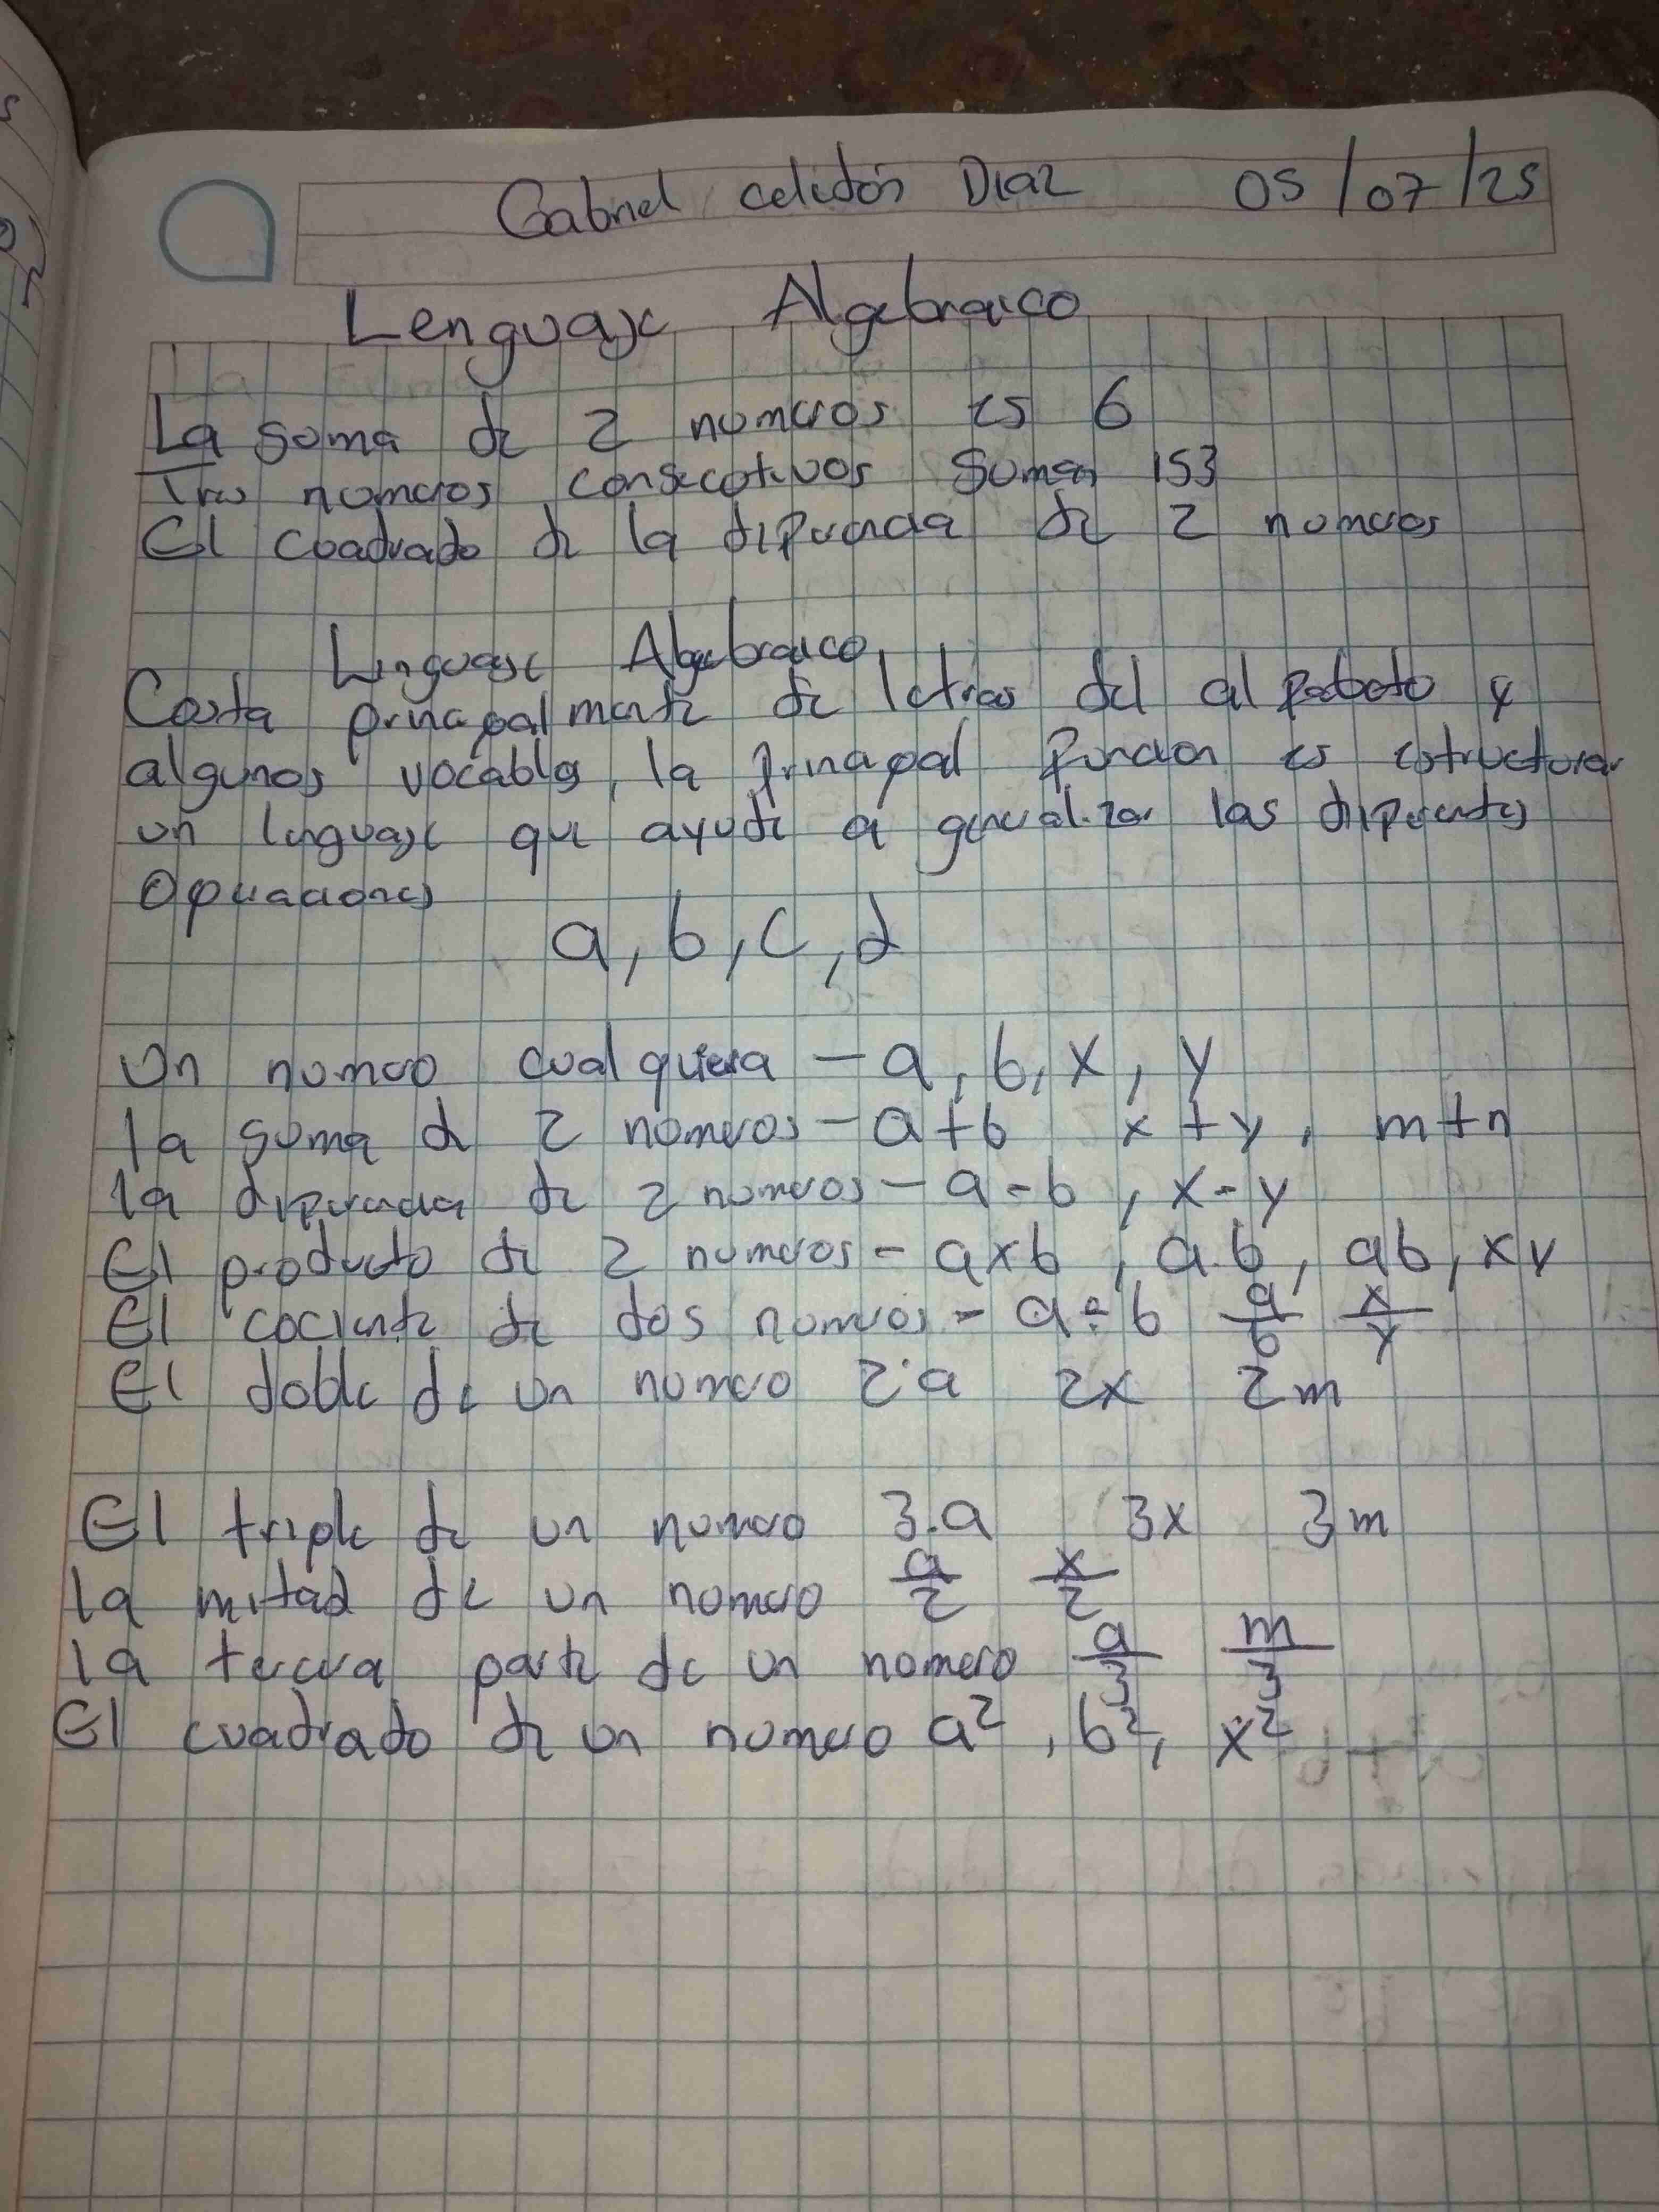 Gabriel Celedón Diaz 05/07/25
Lenguaje Algebraico
La suma de 2 numeros es 6
Tres numeros consecutivos suman 153
El cuadrado de la diferencia de 2 numeros
Lenguaje Algebraico
Costa principalmente de letras del alfabeto y
algunos vocablos, la principal funcion es estructurar
un lenguaje que ayude a generalizar las diferentes
Operaciones
a, b, c, d
Un numero cualquiera - a, b, x, y
la suma de 2 numeros - a+b x+y, m+n
la diferencia de 2 numeros - a-b, x-y
El producto de 2 numeros - axb, a.b, ab, xy
El cociente de dos numeros - a÷b a/b x/y
El doble de un numero 2·a 2x 2m
El triple de un numero 3.a 3x 3m
la mitad de un numero a/2 x/2
la tercera parte de un numero a/3 m/3
El cuadrado de un numero a², b², x²